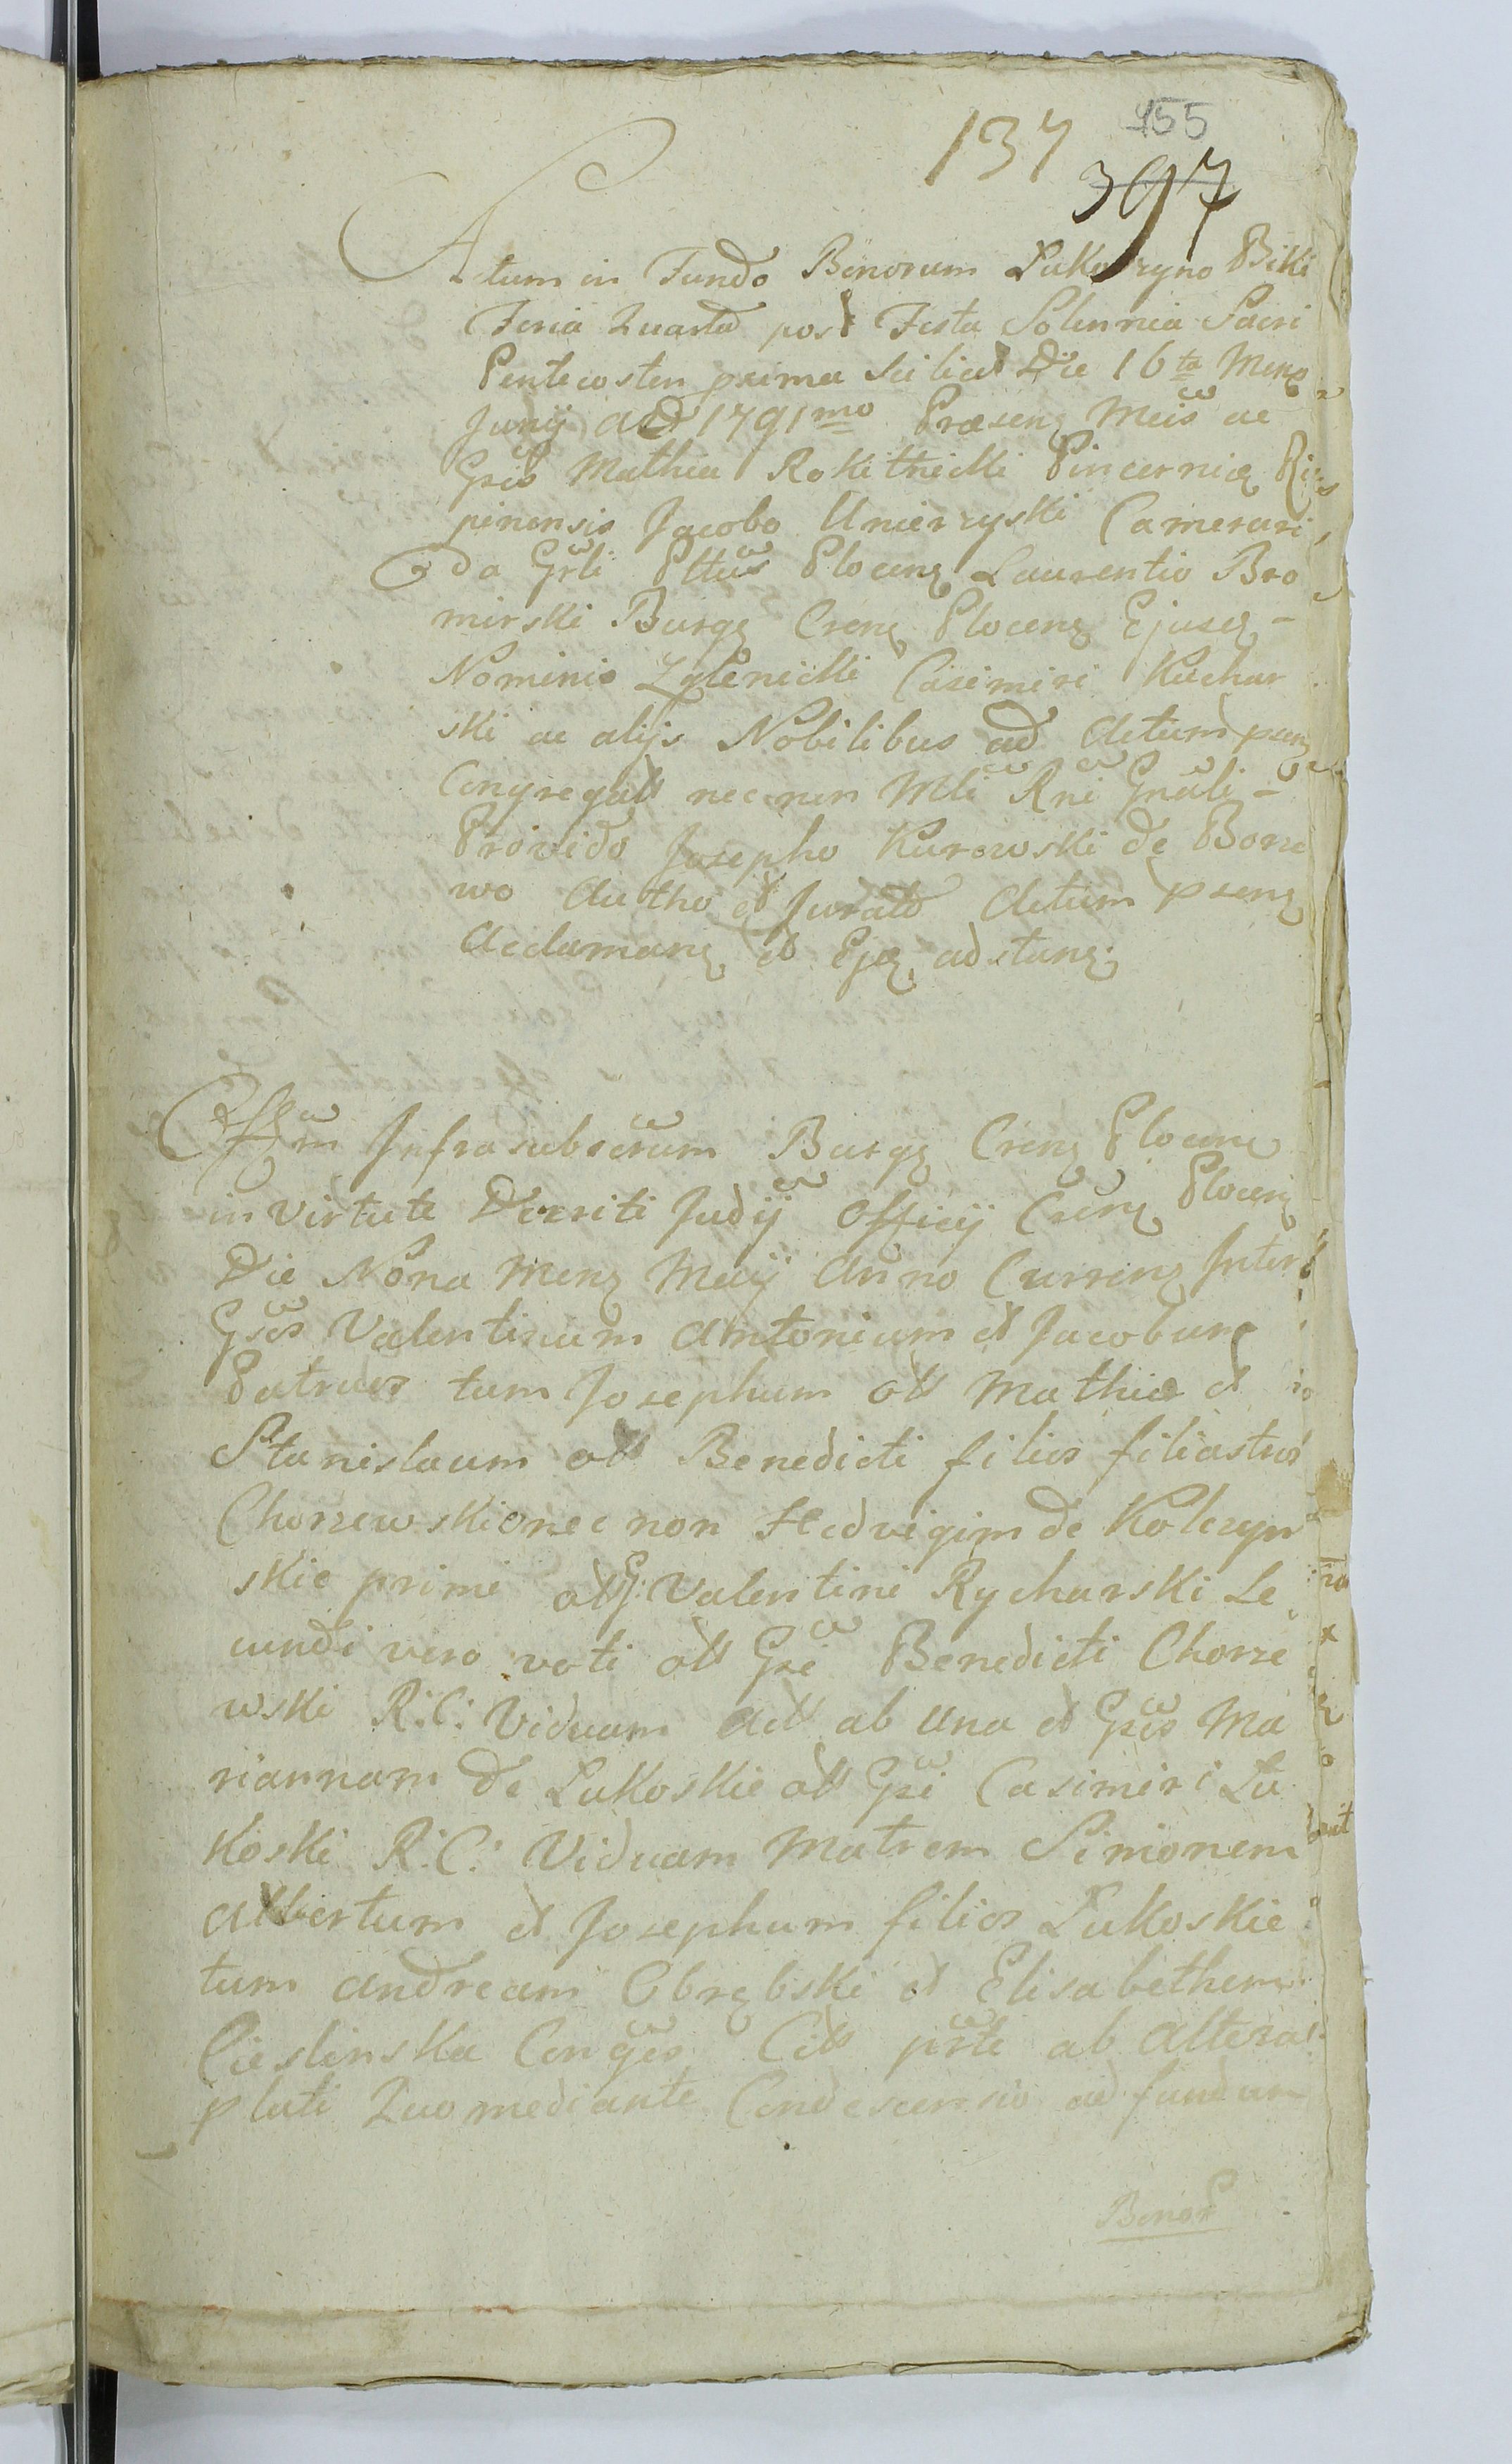 137 455
397
Actum in Fundo Bonorum Lukoszyno Biki
Feria Quarta post Festa Solennia Sacri
Pentecosten prima scilicet Die 16ta Mens
Junij ad 1791mo Præsen Meis ac
Gsis Mathia Rokitnicki Pincernia Ry
pinensis Jacobo Unierzyski Camerari
da Grli Pltus Plocen Laurentio Bro
mirski Burg Cren Plocen Ejusq
Nominis Zglenicki Casimiri Kuchar
ski ac alijs Nobilibus ad Actum psen
Congregatt nec non Mli Rni Gnali
Provido Josepho Kurowski de Borze
wo Autho et Jurato Actum psen
Acclaman et Ejq adstan
Offm Infrasubscrum Burg Cren Plocen
in virtute Decreti Judij Officij Cren Plocen
Die Nona Mens Maij Anno Curren Inter
Gsos Valentinum Antonium et Jacobum
Patruos tum Josephum ott Mathia et
Stanislaum ott Benedicti filios filiastros
Chorzewskie nec non Hedvigim de Kolczyn
skie primi ott G: Valentini Rycharski Se
cundi vero voti ott Gsi Benedicti Chorze
wski R: C: Viduam Actt ab una et Gsos Ma
riannam de Lukoskie ott Gsi Casimiri Lu
koski R: C: Viduam Matrem Simonem
Albertum et Josephum filios Lukoskie
tum Andream Obrębski et Elisabethem
Cieslinska Conges Citt prte ab altera
plati Quo mediante Condescensio ad fundum
Bonor